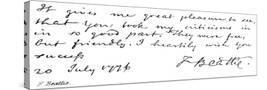 It gives me great pleasure to see,
that you took my criticisms in
in so good part. They were free,
but friendly. I heartily wish you
success
20 July 1776 J Beattie.
J Beattie.